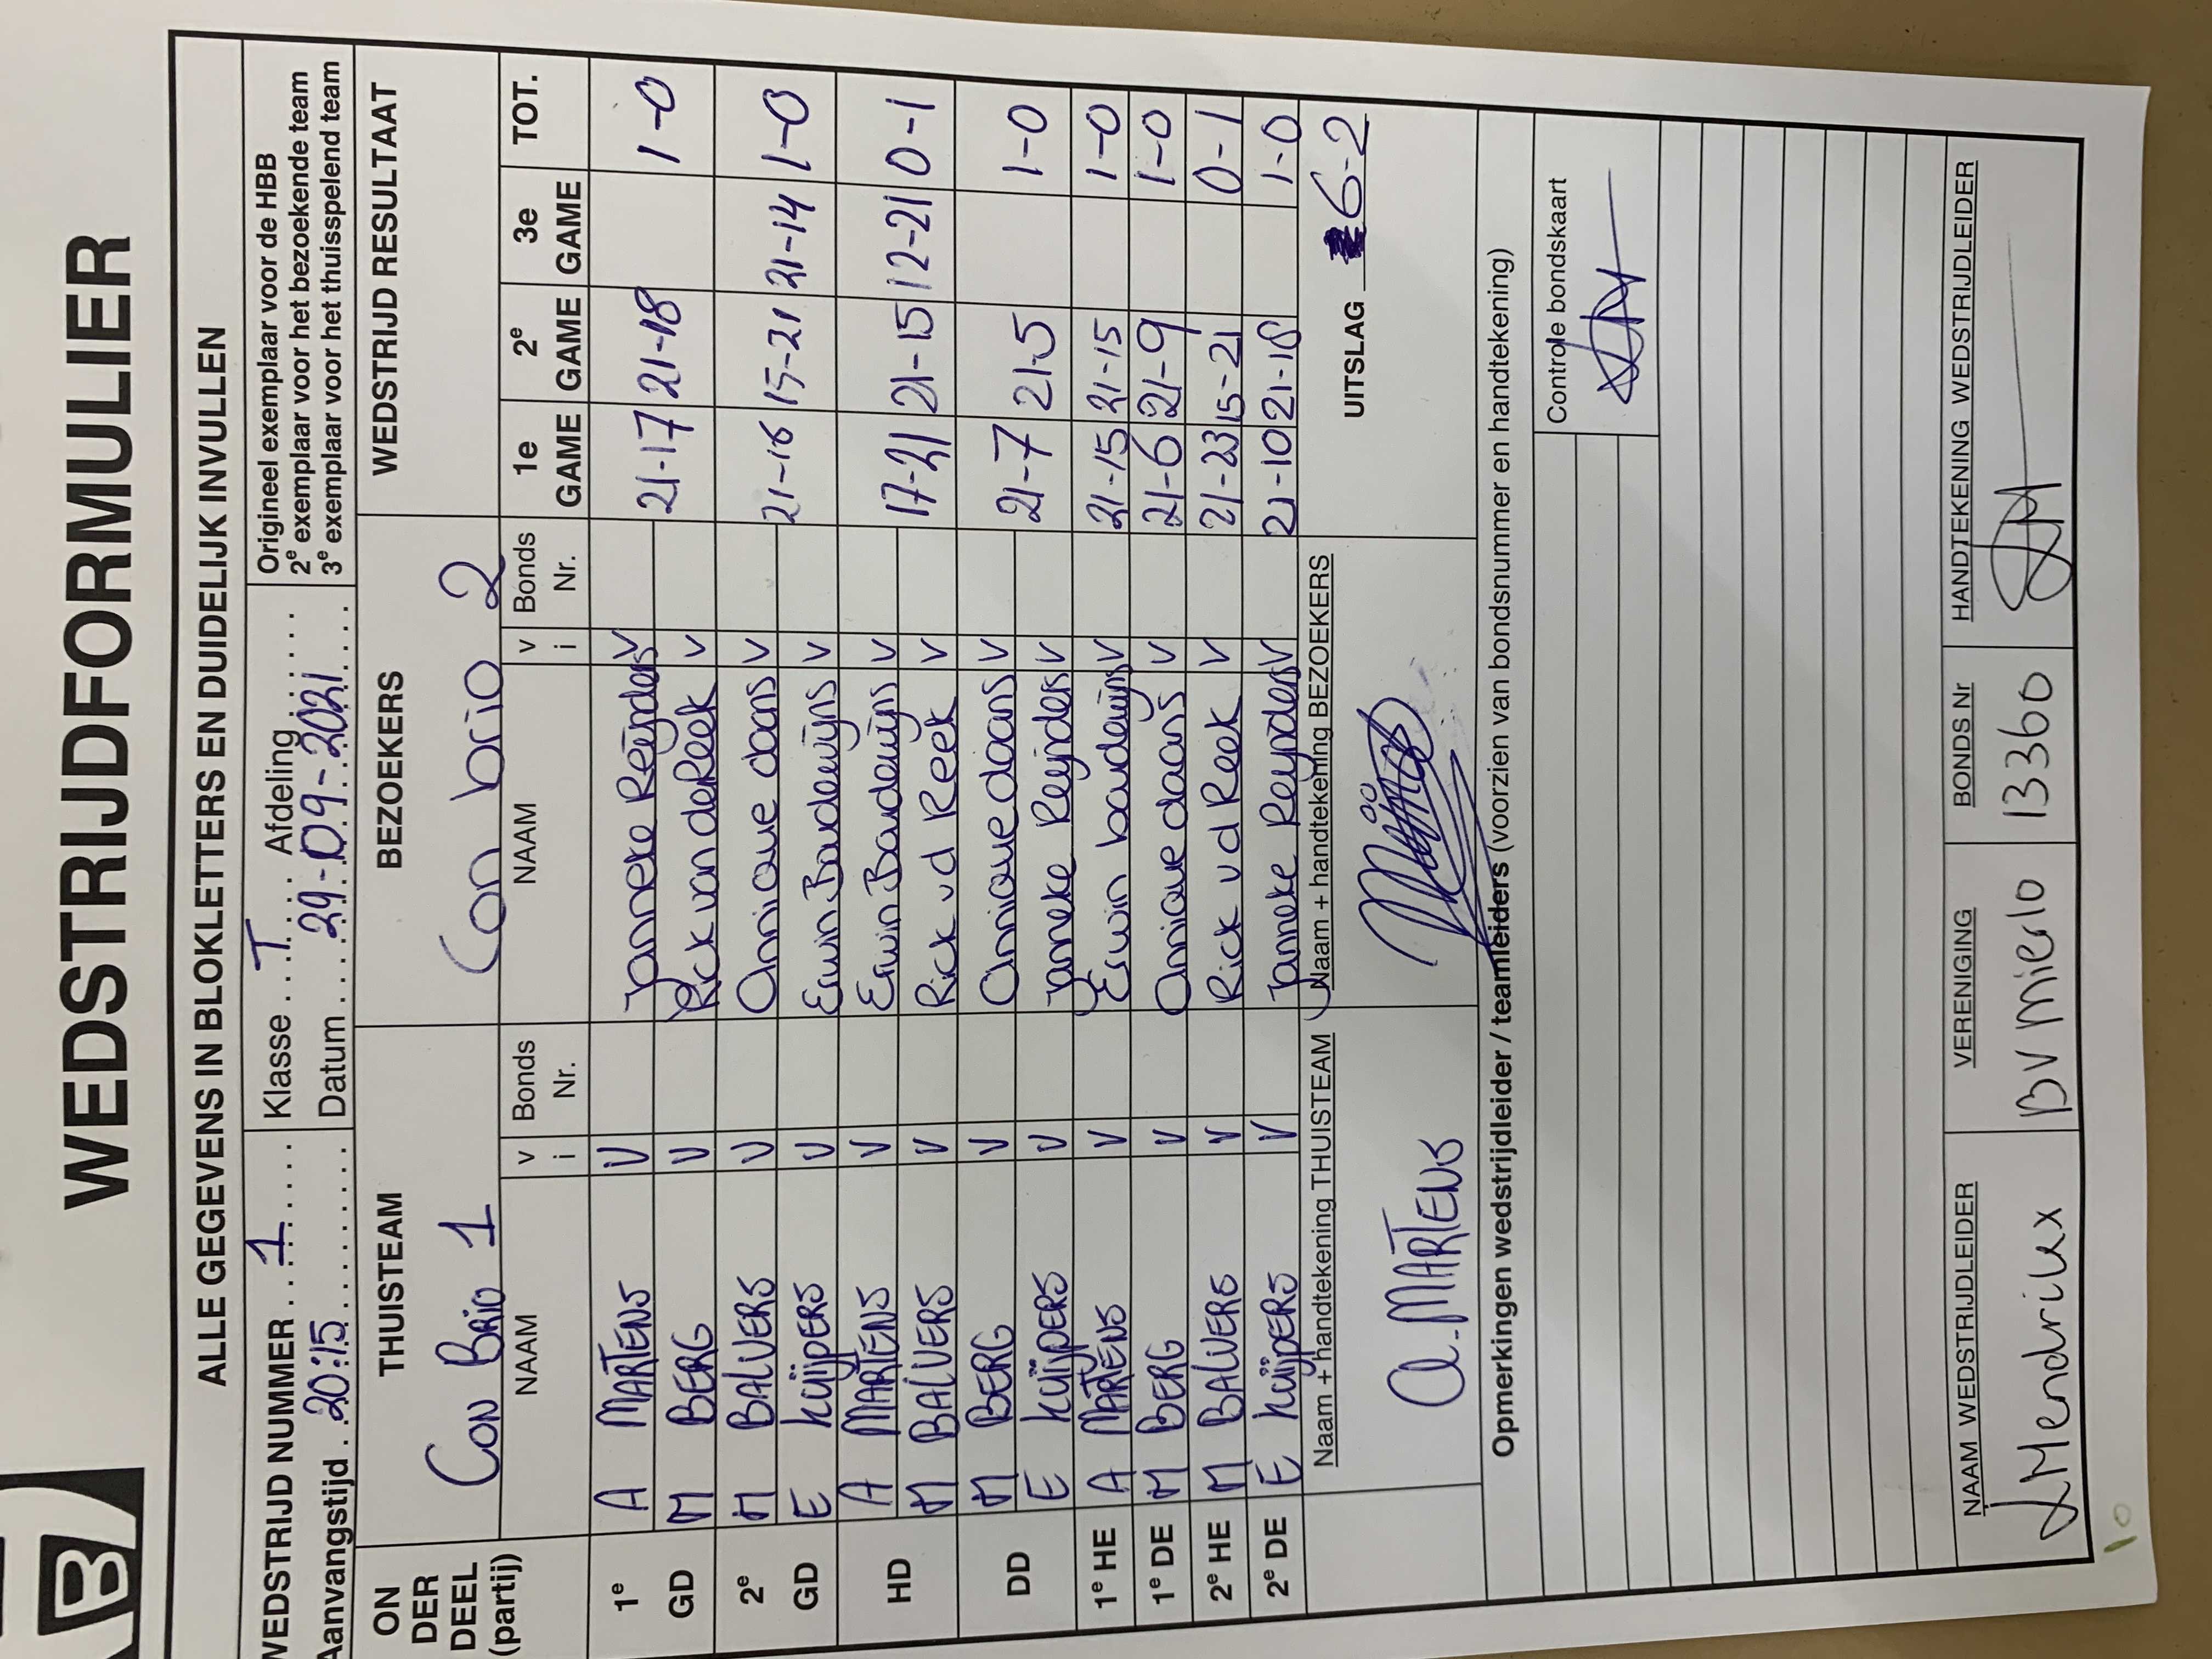 WEDSTRIJDFORMULIER
B
ALLE GEGEVENS IN BLOKLETTERS EN DUIDELIJK INVULLEN
WEDSTRIJD NUMMER 1 Klasse T Afdeling
Aanvangstijd 20:15 Datum 29-09-2021
Origineel exemplaar voor de HBB
2e exemplaar voor het bezoekende team
3e exemplaar voor het thuisspelend team
ON DER DEEL (partij) THUISTEAM BEZOEKERS WEDSTRIJD RESULTAAT
CON BRIO 1 Con brio 2
NAAM v i Bonds Nr. NAAM v i Bonds Nr. 1e GAME 2e GAME 3e GAME TOT.
1e GD A MARTENS V Janneke Reijnders V 21-17 21-18 1-0
M BERG V Rick van de Reek V
2e GD M BALVERS V Annique daans V 21-16 15-21 21-14 1-0
E KUIJPERS V Erwin Baudewijns V
HD A MARTENS V Erwin Baudewijns V 17-21 21-15 12-21 0-1
M BALVERS V Rick vd Reek V
DD M BERG V Annique daans V 21-7 21-5 1-0
E KUIJPERS V Janneke Reijnders V
1e HE A MARTENS V Erwin baudewijns V 21-15 21-15 1-0
1e DE M BERG V Annique daans V 21-6 21-9 1-0
2e HE M BALVERS V Rick vd Reek V 21-23 15-21 0-1
2e DE E KUIJPERS V Janneke Reynders V 21-10 21-18 1-0
Naam + handtekening THUISTEAM Naam + handtekening BEZOEKERS UITSLAG 6-2
A. MARTENS
Opmerkingen wedstrijdleider / teamleiders (voorzien van bondsnummer en handtekening)
Controle bondskaart
NAAM WEDSTRIJDLEIDER VERENIGING BONDS Nr HANDTEKENING WEDSTRIJDLEIDER
BV Mierlo 13360
10